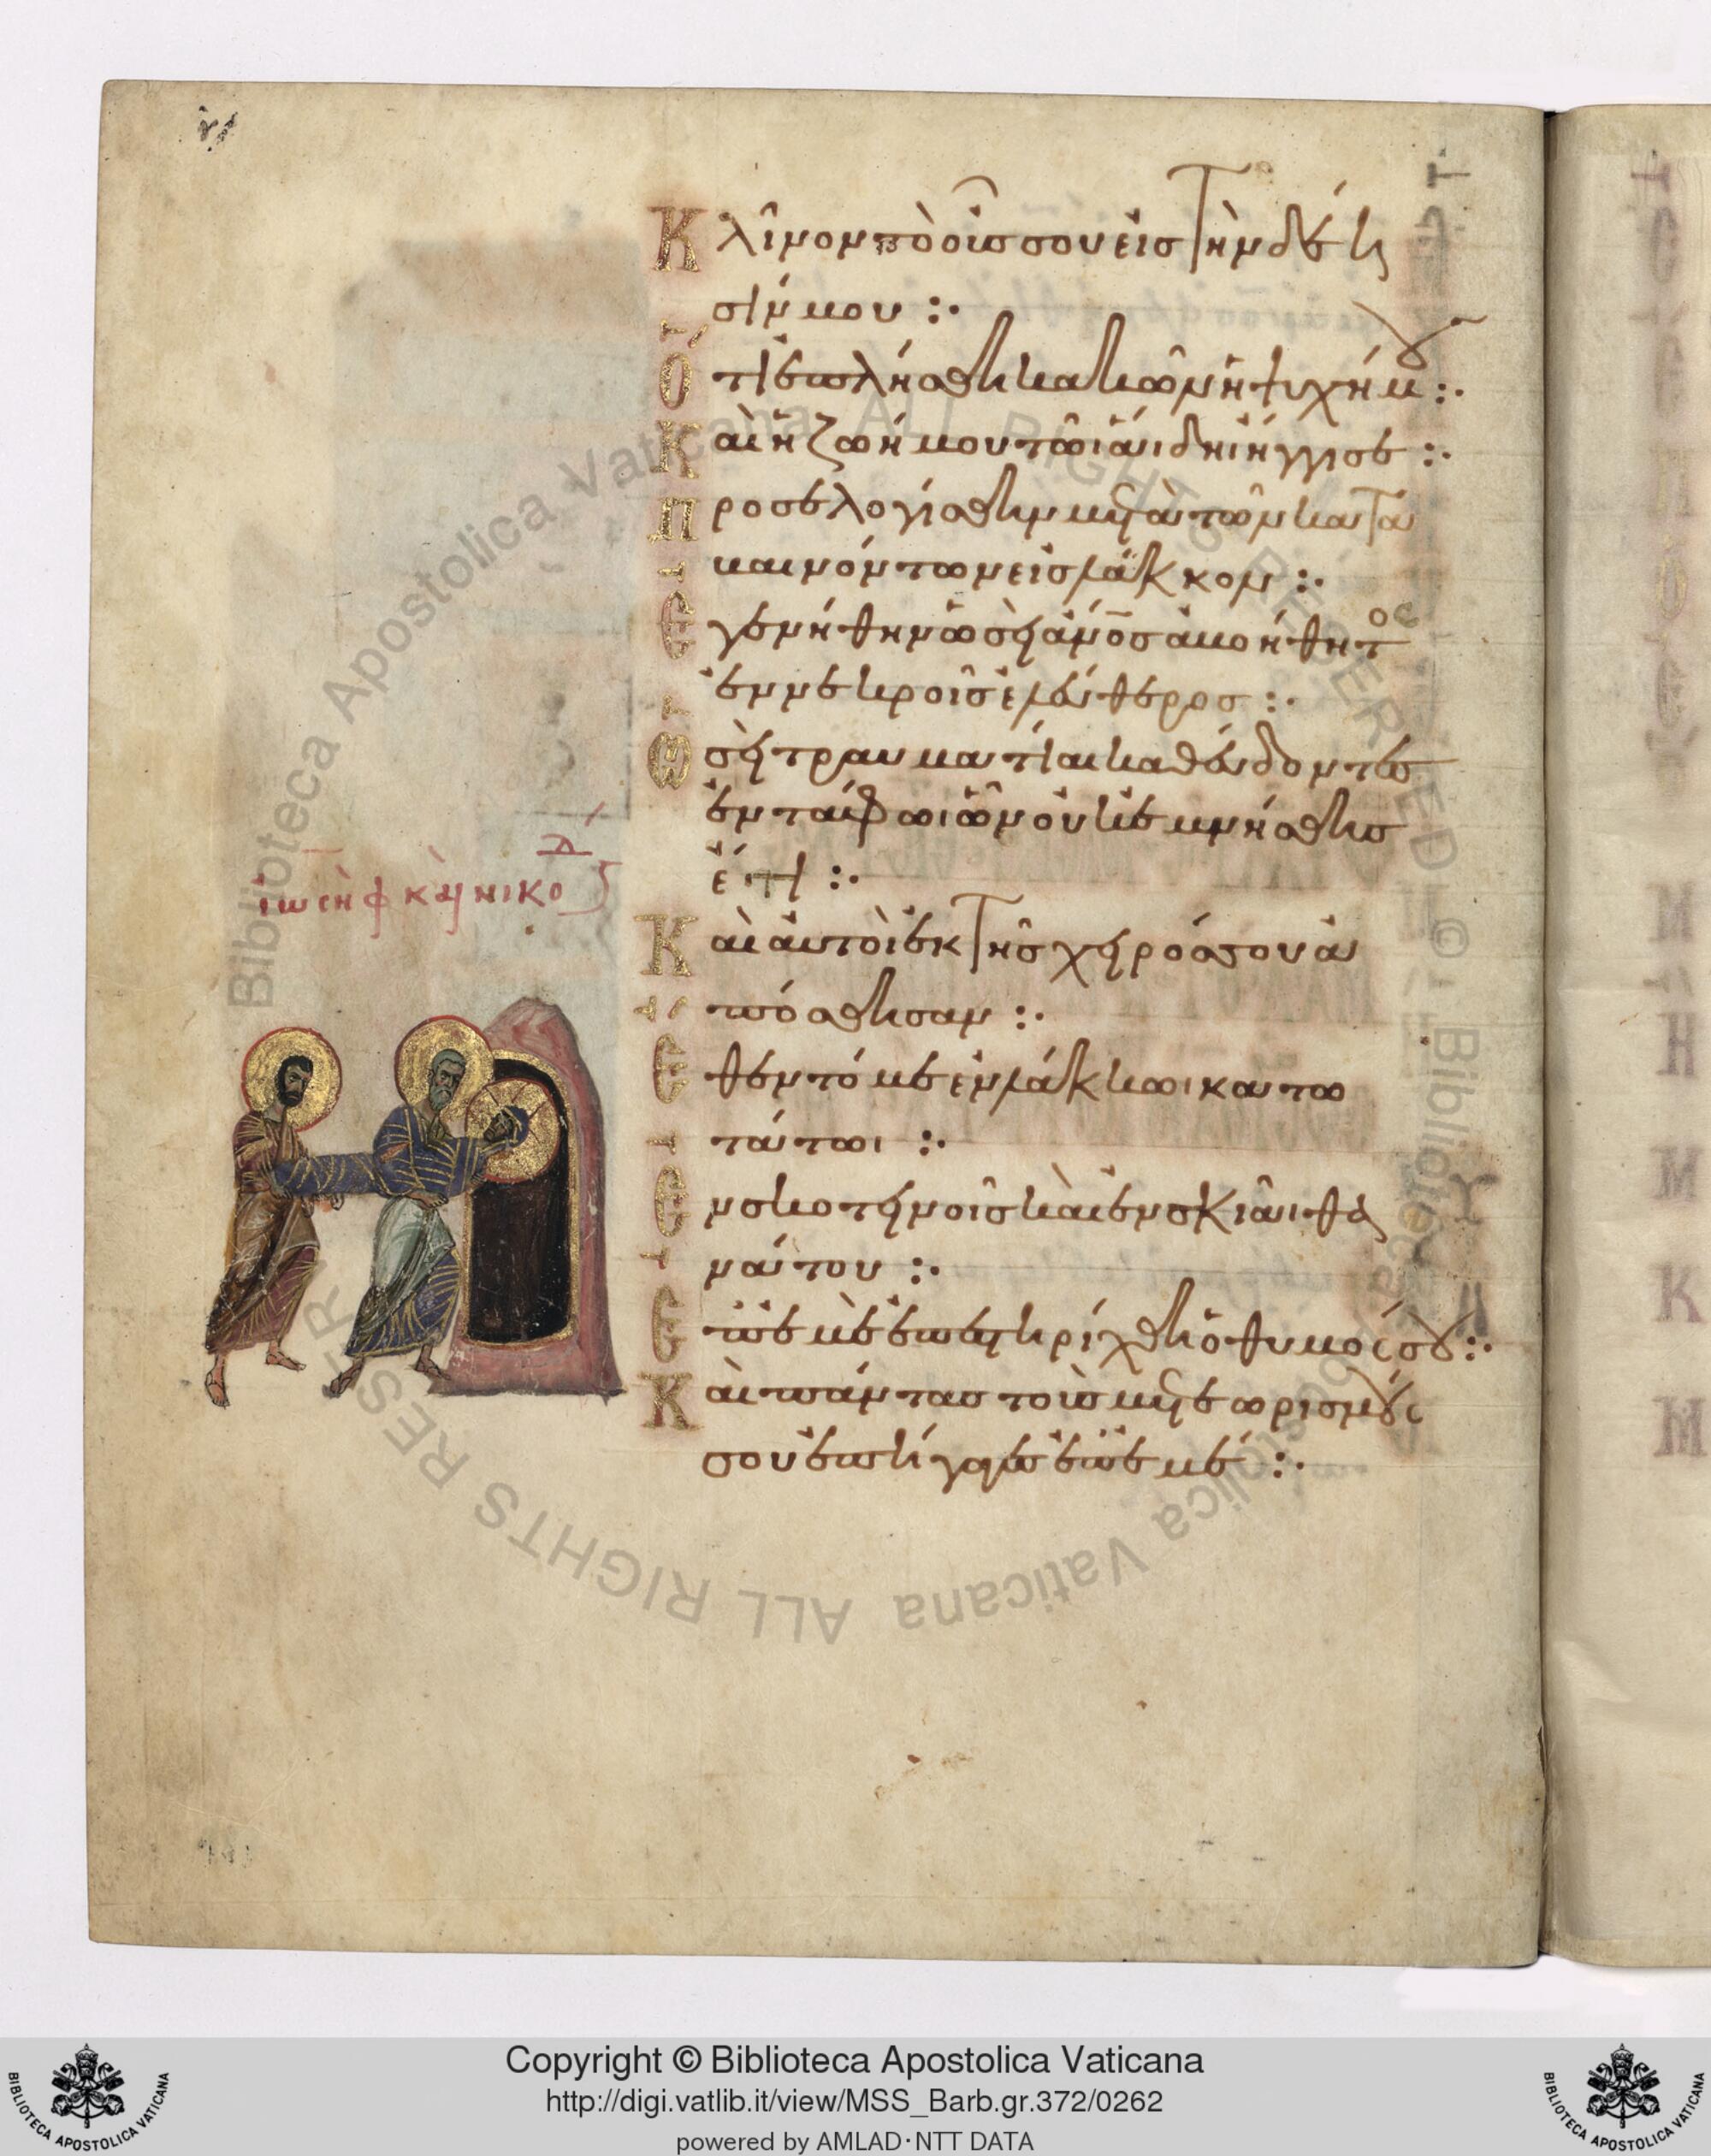 Κλῖνον τὸ οὖς σου εἰς τὴν δέη
σίν μου :·
Ὅτι ἐπλήσθη κακῶν ἡ ψυχή μου :·
Καὶ ἡ ζωή μου τῶι ἅιδηι ἤγγισε :·
Προσελογίσθην μετὰ τῶν κατα
βαινόντων εἰς λάκκον :·
Ἐγενήθην ὡσεὶ ἄνος ἀβοήθητος
ἐν νεκροῖς ἐλεύθερος :·
Ὡσεὶ τραυματίαι καθεύδοντες
ἐν τάφωι ὧν οὐκ ἐμνήσθης
ἔτι :·
Καὶ αὐτοὶ ἐκ τῆς χειρός σου ἀ
πώσθησαν :·
Ἔθεντό με ἐν λάκκωι κατω
τάτωι :·
Ἐν σκοτεινοῖς καὶ ἐν σκιᾶι θα
νάτου :·
Ἐπ' ἐμὲ ἐπεστηρίχθη ὁ θυμός σου :·
Καὶ πάντας τοὺς μετεωρισμούς
σου ἐπήγαγες ἐπ' ἐμέ :·
ἰωσὴφ καὶ νικόδ
Copyright © Biblioteca Apostolica Vaticana
http://digi.vatlib.it/view/MSS_Barb.gr.372/0262
powered by AMLAD·NTT DATA
BIBLIOTECA APOSTOLICA VATICANA
BIBLIOTECA APOSTOLICA VATICANA
Biblioteca Apostolica Vaticana ALL RIGHTS RESERVED © Biblioteca Apostolica Vaticana ALL RIGHTS RESER